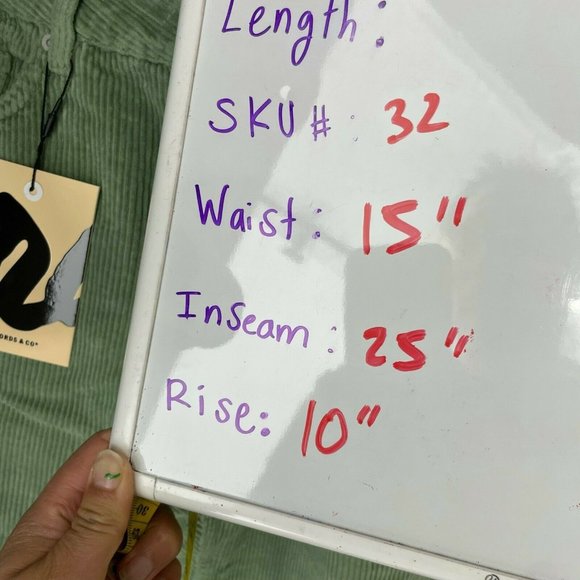 Length:
SKU#: 32
Waist: 15"
Inseam: 25"
Rise: 10"
ORDS & CO
30